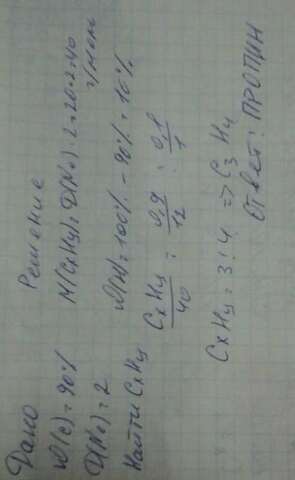 Дано
W(C) = 90%
D(H₂) = 2
Найти CxHy
Решение
M(CxHy) = D(H₂) · 2 = 20 · 2 = 40 г/моль
W(H) = 100% - 90% = 10%
CxHy/40 = 0,9/12 : 0,1/1
CxHy = 3:4 => C₃H₄
Ответ: ПРОПИН